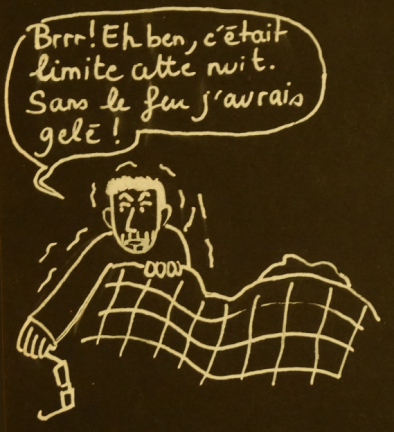 Brrr! Eh ben, c'était
limite cette nuit.
Sans le feu j'aurais
gelé !